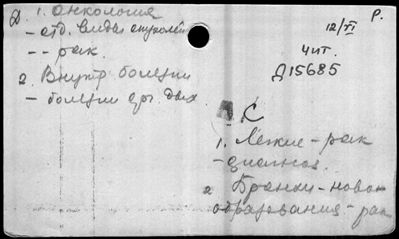 Д 1. Онкология
- отд. виды опухолей
-- рак
2. Внутр болезни
- болезни орг. дых
12/VI
Р.
Чит.
Д15685
К
1. Легкие - рак
- диагноз
2. Бронхи - ново
образования - рак